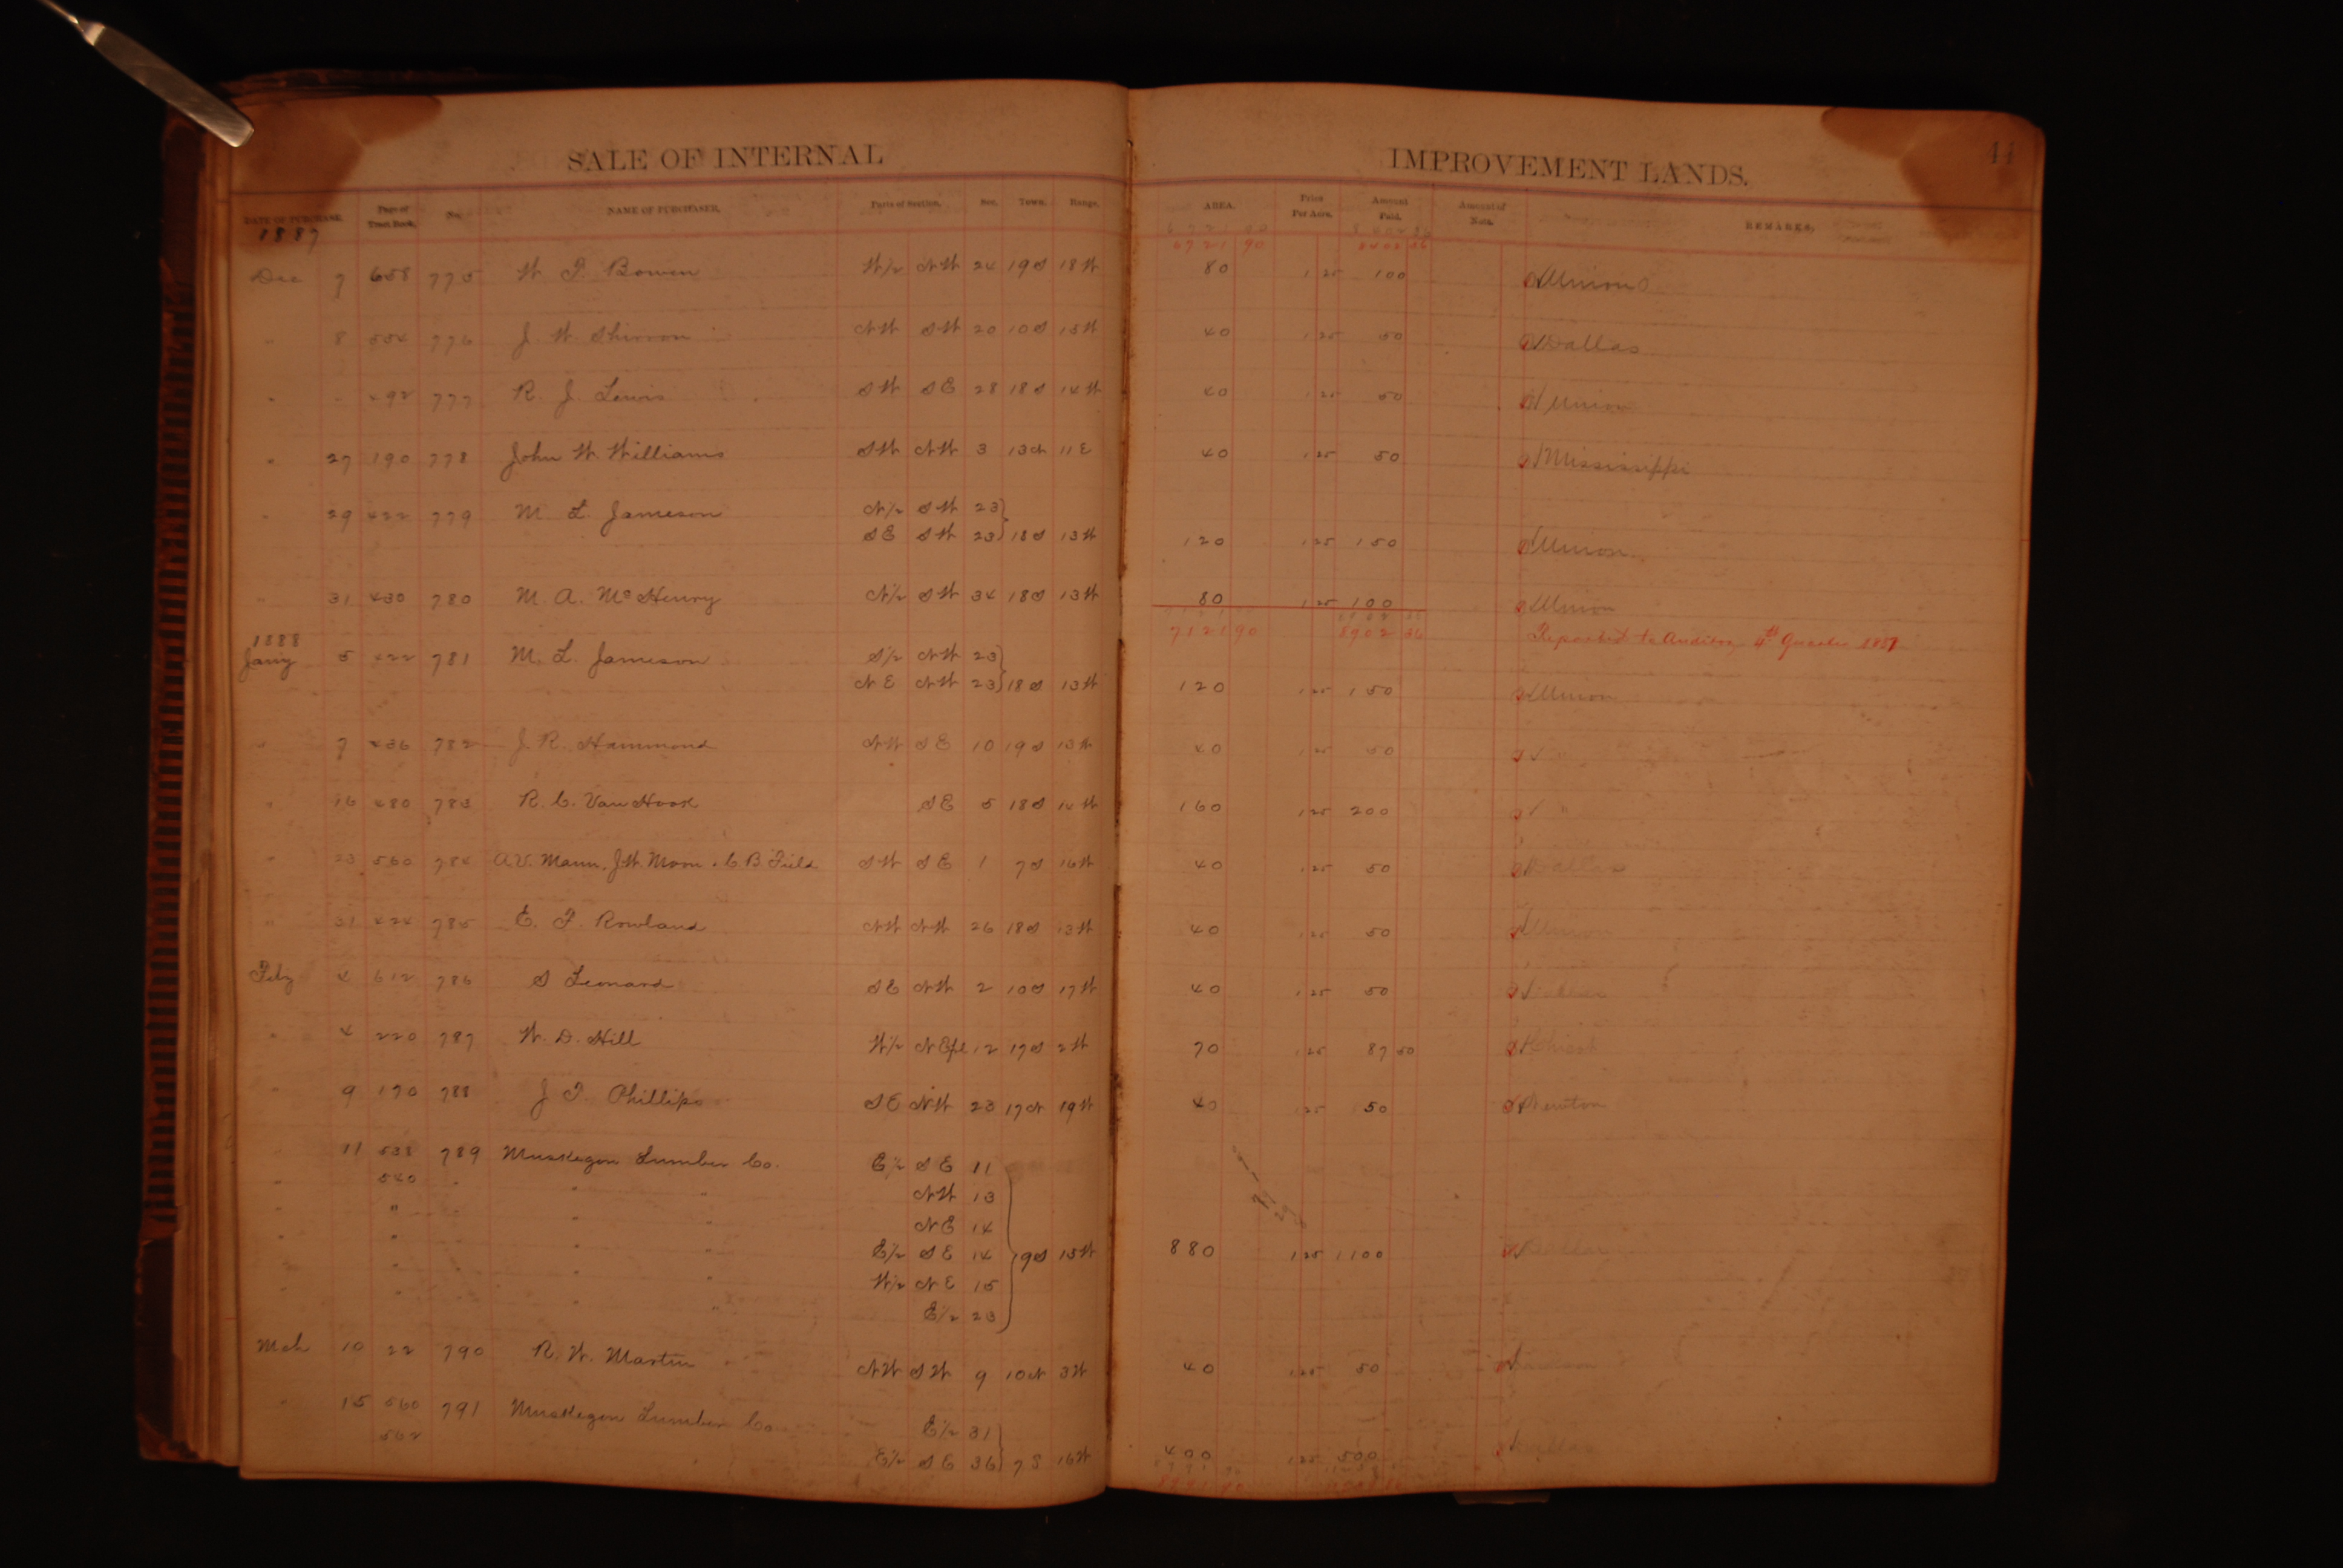 SALE OF INTERNAL IMPROVEMENT LANDS. 44
DATE OF PURCHASE. Page of Tract Book. No. NAME OF PURCHASER. Parts of Section. Sec. Town. Range. AREA. Price Per Acre. Amount Paid. Amount of Note. REMARKS.
1887 6721 90 8402 36
Dec 7 658 775 W. F. Bowen W/2 NW 24 19S 18W 80 1 25 100 Union
" 8 554 776 J. W. Shinon NW SW 20 10S 15W 40 1 25 50 Dallas
" " 492 777 R. J. Lewis SW SE 28 18S 14W 40 1 25 50 Union
" 27 190 778 John W. Williams SW NW 3 13N 11E 40 1 25 50 Mississippi
" 29 422 779 M. L. Jameson N/2 SW 23
SE SW 23 18S 13W 120 1 25 150 Union
" 31 430 780 M. A. McHenry N/2 SW 34 18S 13W 80 1 25 100 Union
7121 90 8902 36 Reported to Auditor, 4th Quarter 1887
1888
Jany 5 422 781 M. L. Jameson S/2 NW 23
NE NW 23 18S 13W 120 1 25 150 Union
" 7 436 782 J. R. Hammond NW SE 10 19S 13W 40 1 25 50 "
" 16 480 783 R. C. Van Hook SE 5 18S 14W 160 1 25 200 "
" 23 560 784 A. V. Mann, J. W. Moon, C. B. Field SW SE 1 7S 16W 40 1 25 50 Dallas
" 31 424 785 E. F. Rowland NW NW 26 18S 13W 40 1 25 50 Union
Feby 4 612 786 S Leonard SE NW 2 10S 17W 40 1 25 50 Dallas
" 4 220 787 W. D. Hill W/2 NEfrl 12 17S 2W 70 1 25 87 50 Chicot
" 9 170 788 J. T. Phillips SE NW 23 17N 19W 40 1 25 50 Newton
" 11 538 789 Muskegon Lumber Co. E/2 SE 11
" 540 " " " NW 13
" " " " " NE 14
" " " " " E/2 SE 14 9S 15W 880 1 25 1100 Dallas
" " " " " W/2 NE 15
" " " " " E/2 23
Mch 10 22 790 R. W. Martin NW SW 9 10N 3W 40 1 25 50
" 15 560 791 Muskegon Lumber Co. E/2 31
562 E/2 SE 36 7S 16W 400 1 25 500 Dallas